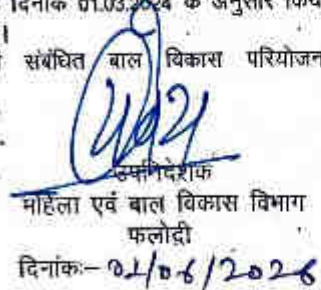 दिनांक 01.03.2024 के अनुसार किय
।
संबंधित बाल विकास परियोजन
उपनिदेशक
महिला एवं बाल विकास विभाग
फलोदी
दिनांकः- 02/06/2026